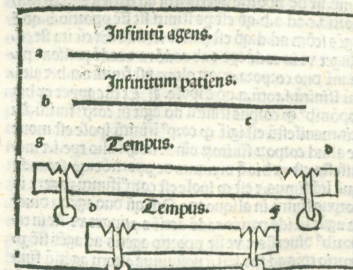 Infinitū agens.
a
Infinitum patiens.
b c
g Tempus. d
d Tempus. f